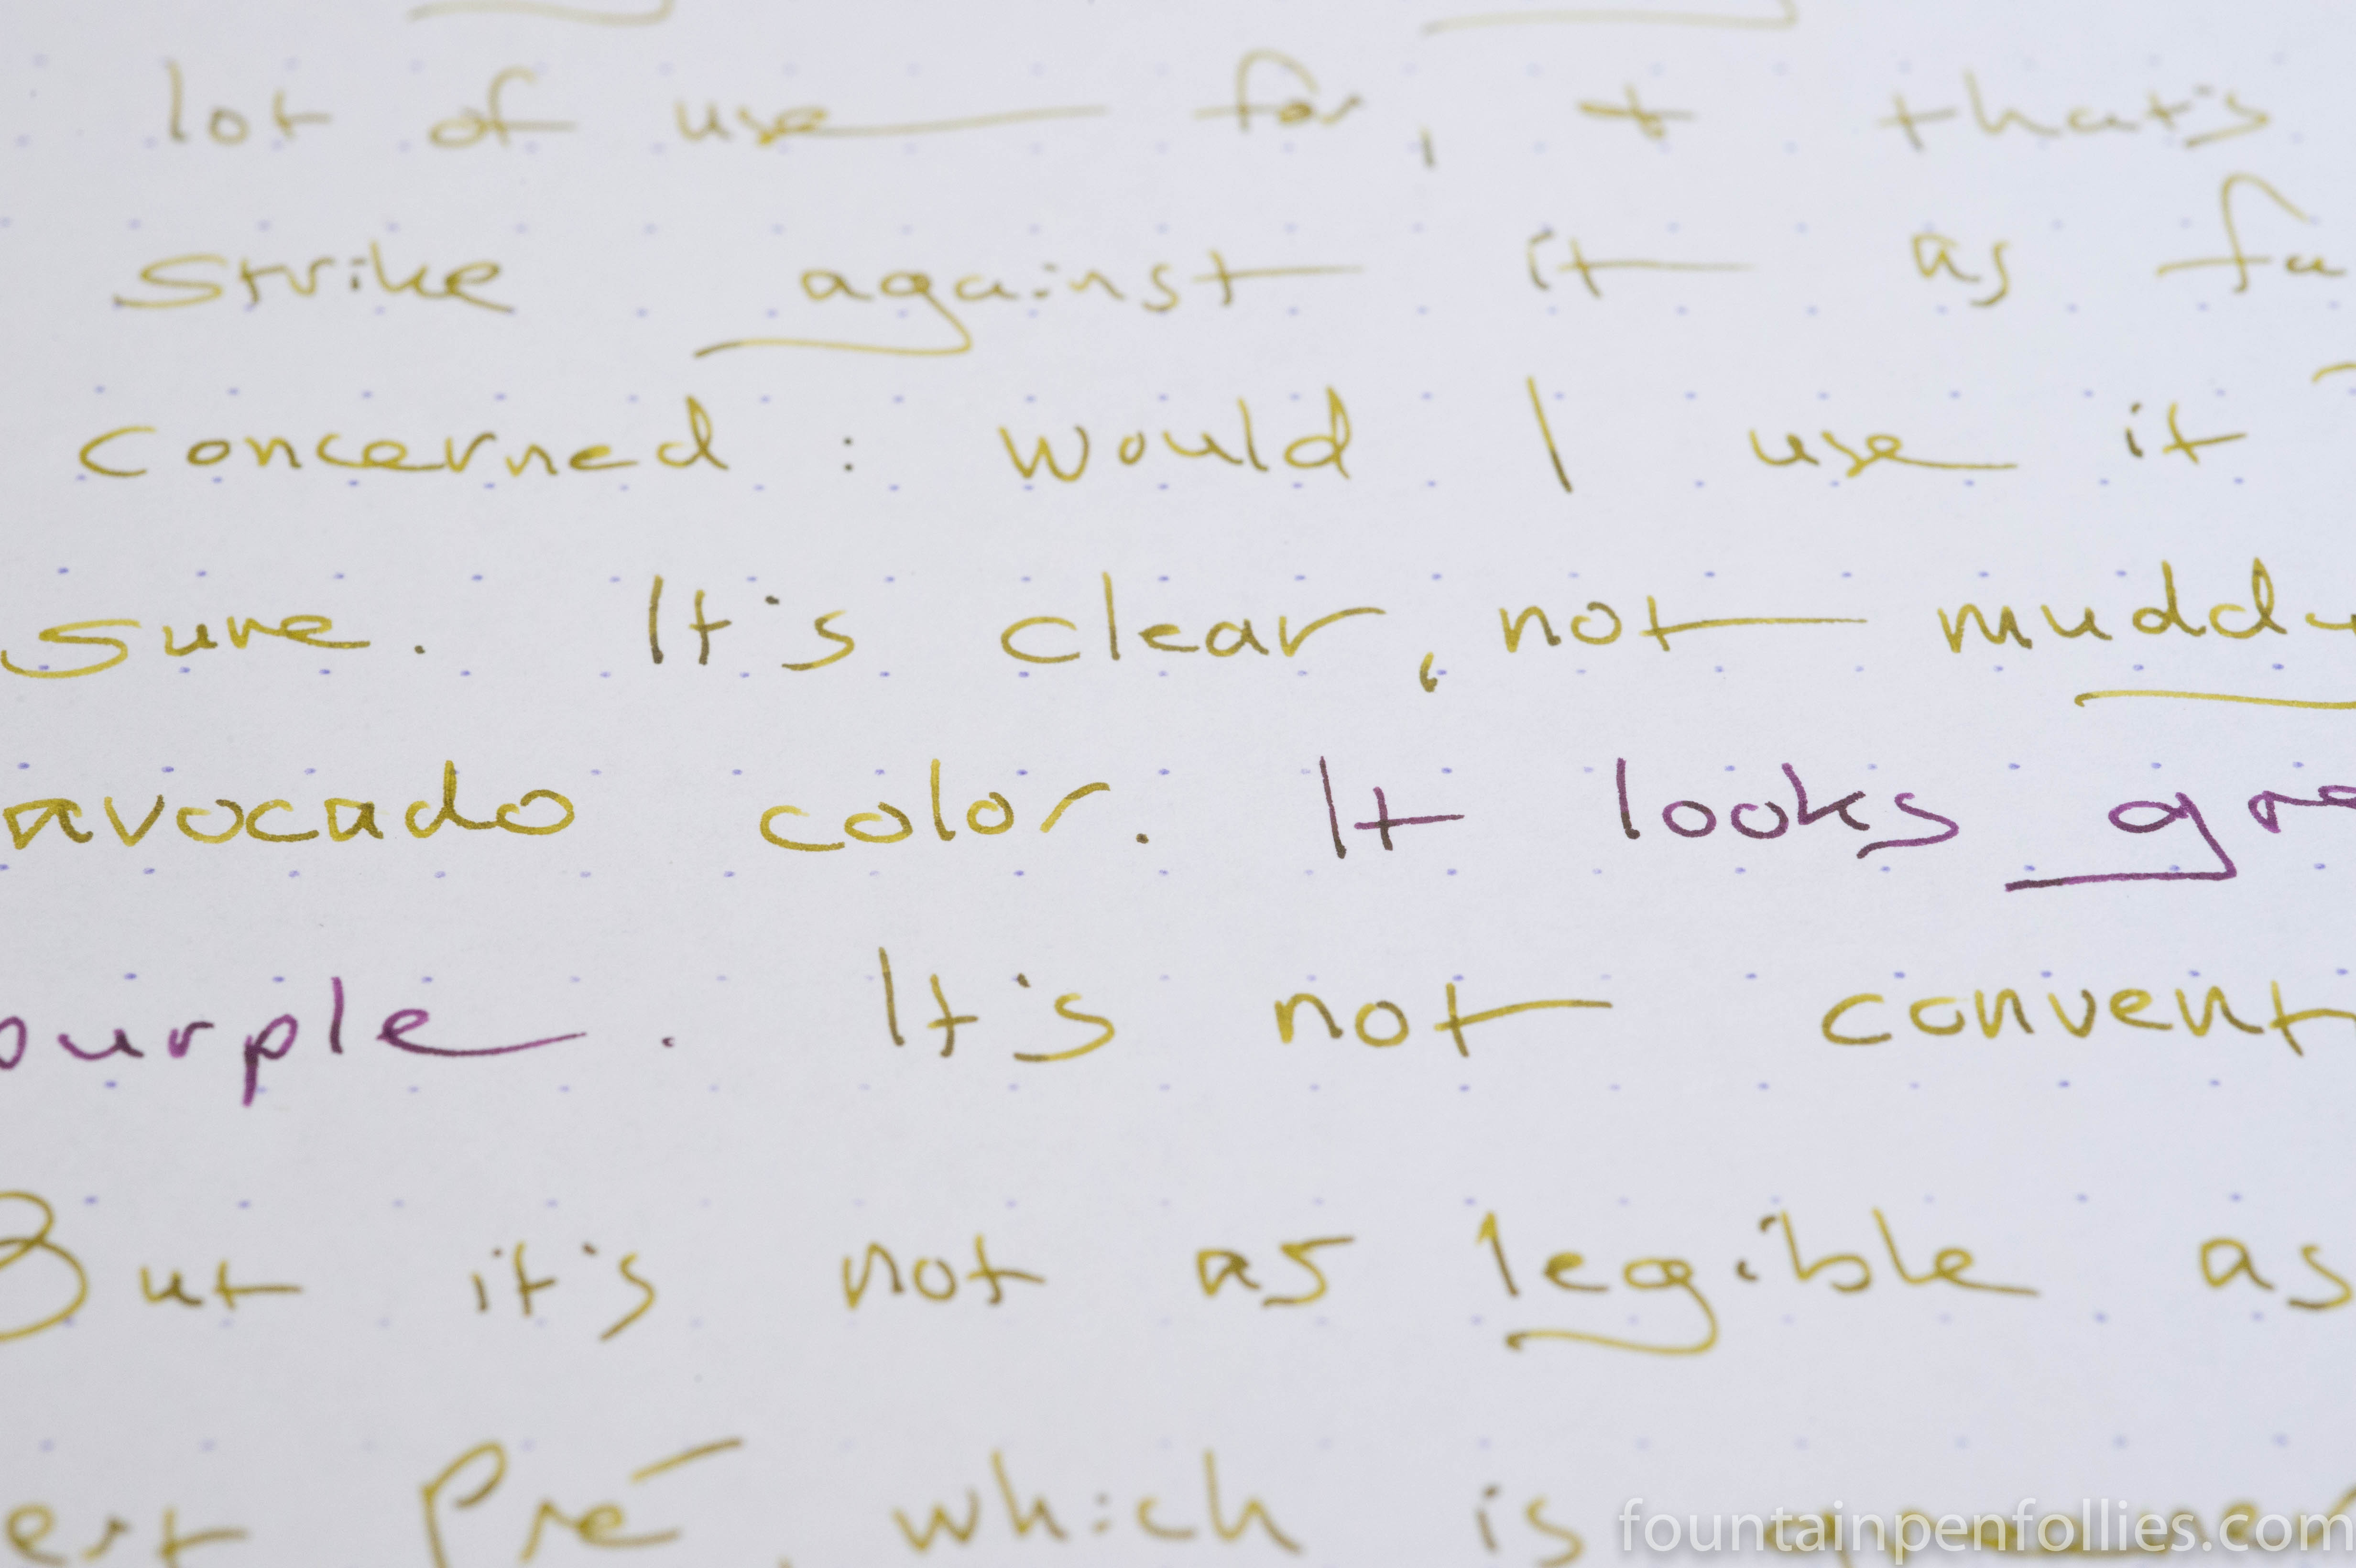 lot of use for, + that's
strike against it as fa
concerned: would I use it
sure. It's clear, not muddy
avocado color. It looks gre
purple. It's not convent
But it's not as legible as
ert Pré, which is
fountainpenfollies.com